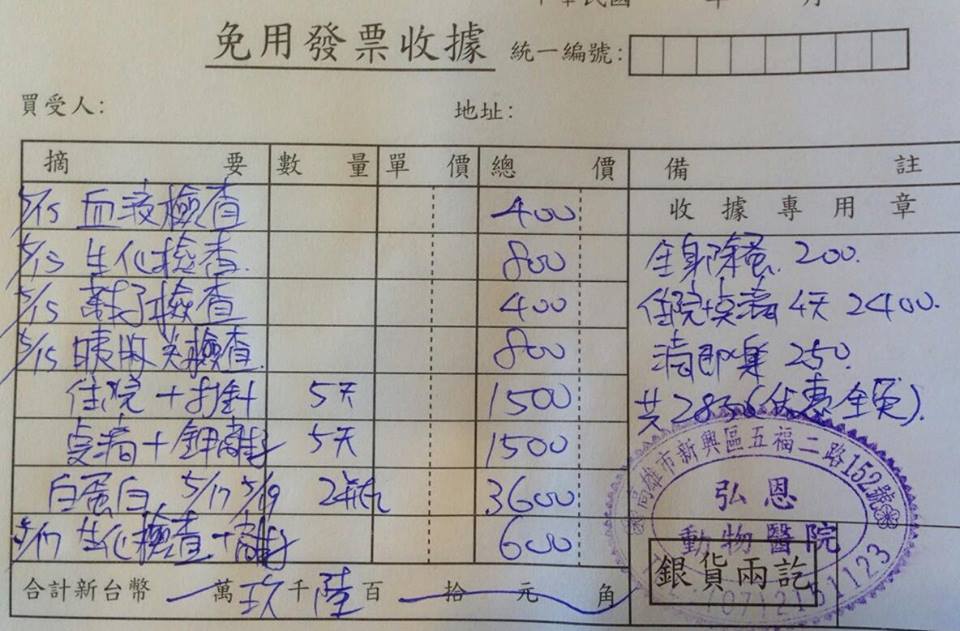 中華民國 年 月
免用發票收據 統一編號:
買受人: 地址:
摘要 數量 單價 總價 備註
收據專用章
5/15 血液檢查 400
5/15 生化檢查 800 全身除蚤 200.
5/15 離子檢查 400 住院+点滴 4天 2400.
5/15 胰臟炎檢查 800 滴即樂 250.
住院+打針 5天 1500 共2850(優惠全免).
点滴+鉀離子 5天 1500
白蛋白 5/17 5/19 2瓶 3600
5/17 生化檢查+離子 600
合計新台幣 萬玖千陸百 拾 元 角
高雄市新興區五福二路152號
弘恩
動物醫院
銀貨兩訖